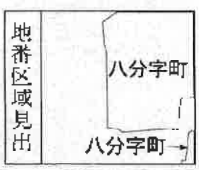 地番区域見出
八分字町
八分字町